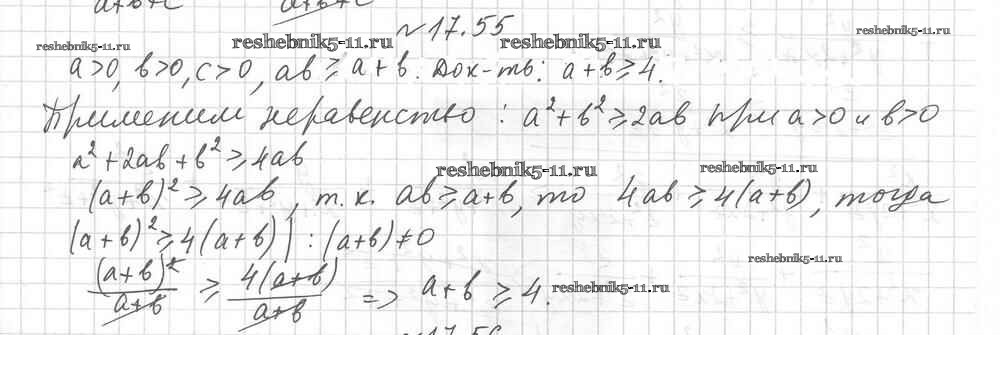 a+b+c a+b+c
№17.55
reshebnik5-11.ru reshebnik5-11.ru reshebnik5-11.ru reshebnik5-11.ru
a>0, b>0, c>0, ab ≥ a+b. Док-ть: a+b≥4.
Применим неравенство: a²+b²≥2ab при a>0 и b>0
a²+2ab+b²≥4ab
reshebnik5-11.ru reshebnik5-11.ru
(a+b)²≥4ab, т.к. ab≥a+b, то 4ab≥4(a+b), тогда
(a+b)²≥4(a+b) | : (a+b)≠0
reshebnik5-11.ru
(a+b)²/a+b ≥ 4(a+b)/a+b => a+b≥4.
reshebnik5-11.ru
№17.56